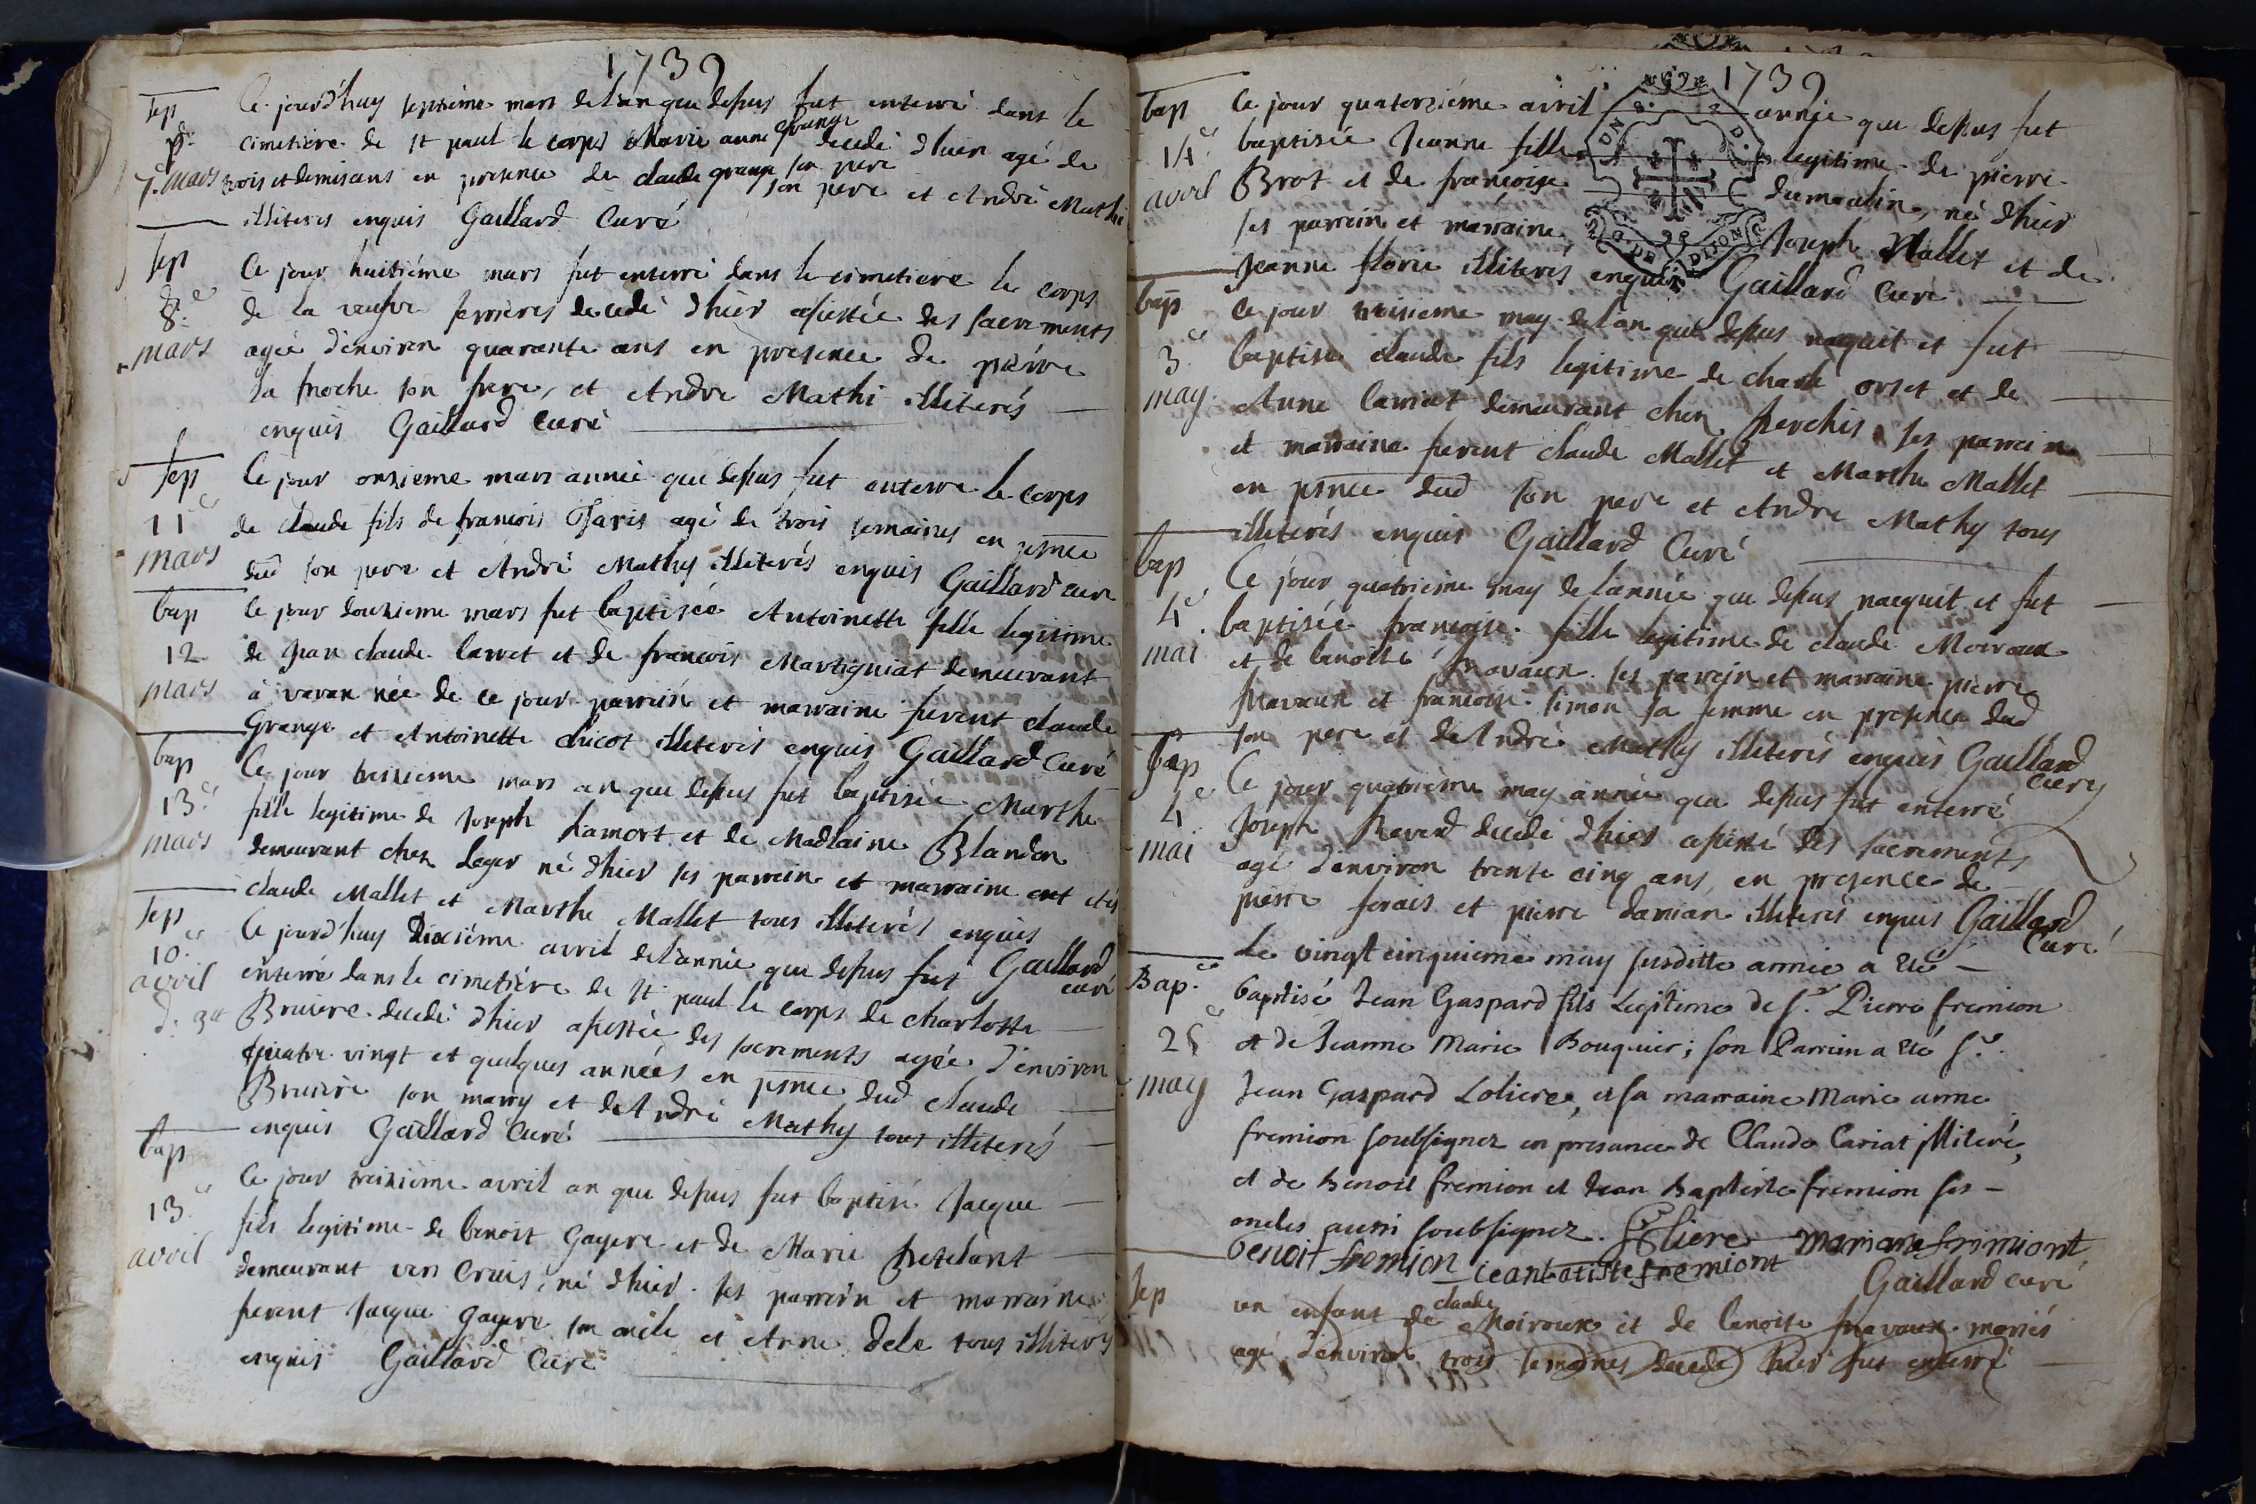 1739
Sep
p.
7. mars
Ce jourd'huy septieme mars de l'an que dessus fut enterré dans le
cimetiere de st paul le corps Marie anne grange decedé d'hier agé de
trois et demis ans en presence de claude grange son pere
son pere et André Mathi
illiteres enquis Gaillard Curé
Sep
8.e
mars
Ce jour huitiéme mars fut enterré dans le cimetiere le corps
de la veufve ferrieres decedé d'hier assistée des sacrements
agée d'environ quarante ans en presence de pierre
la froche son frere, et Andre Mathi illiterés
enquis Gaillard curé
Sep
11e
mars
Ce jour onzieme mars année que dessus fut enterre le corps
de claude fils de francois Paris agé de trois semaines en psnce
dud son pere et André Mathy illiterés enquis Gaillard curé
bap
12
mars
Ce jour douzieme mars fut baptisée Antoinette fille legitime
de Jean claude Carret et de francois Martigniat demeurant
à varan née de ce jour parrain et marraine furent claude
Grange et Antoinette chicot illiterés enquis Gaillard Curé
bap
13.e
mars
Ce jour treizieme mars an que dessus fut baptisée Marthe
fille legitime de Joseph Lamort et de Madlaine Blandon
demeurant chez Leger né d'hier ses parrein et marraine ont etés
claude Mallet et Marthe Mallet tous illiterés enquis
Gaillard
curé
Sep
10.e
avril
Ce jourd'huy Dixiéme avril de l'année que dessus fut
enterré dans le cimetiére de st paul le corps de charlotte
Bruiere decedé d'hier assistée des sacrements agée d'environ
quatre vingt et quelques années en psnce dud claude
Bruiere son marry et de André Mathy tous illiterés
enquis Gaillard Curé
bap
13.e
avril
Ce jour treizieme avril an que dessus fut baptisé Jacque
fils legitime de benoit Gayere et de Marie Petelant
demeurant vers Cruis, né d'hier. ses parrein et marraine
furent Jacque gayere son oncle et Anne dele tous illiterés
enquis Gaillard Curé
1739
bap
14.e
avril
Ce jour quatorziéme avril année que dessus fut
baptisée Jeanne fille legitime de pierre
Brot et de francoise dumoulin, né d'hier
ses parrein et marraine Joseph Mallet et de
Jeanne florie illiterés enquis Gaillard Curé
bap
3.e
may
Ce jour troisieme may de l'an que dessus naquit et fut
baptisé claude fils legitime de charle orset et de
Anne Carriat demeurant chez Perchis ses parrein
et marraine furent claude Mallet et Marthe Mallet
en psnce dud son pere et Andre Mathy tous
illiterés enquis Gaillard Curé
bap
4.e
mai
Ce jour quatrieme may de l'année que dessus nacquit et fut
baptisée francoise fille legitime de claude Moiroux
et de benoite fravaux. ses parrein et marraine pierre
fravaux et francoise simon sa femme en presence dud
son pere et de André Mathy illiterés enquis Gaillard
Curé
Sep
4.e
mai
Ce jour quatrieme may année que dessus fut enterré
Joseph Ravard decedé d'hier assisté des sacrements
agé d'environ trente cinq ans, en presence de
pierre forais et pierre danian illiterés enquis Gaillard
Curé
Bap.
25.e
may
Le vingt cinquieme may susditte année a eté
baptisé Jean Gaspard fils Legitime de sr. Pierre fremion
et de Jeanne Marie Bouquier; son Parrin a eté sr.
Jean Gaspard Loliere, et sa marraine Marie anne
fremion soubsignez en presance de Claude Cariat illiteré,
et de Benoit fremion et Jean Baptiste fremion ses
oncles aussi soubsignez. Loliere mariane frimiont
benoit fremion jean batiste fremiont
Gaillard curé
Sep
un enfant de claude Moiroux et de benoite fravaux mariés
agé d'environ trois semaines decedé hier fut enterré